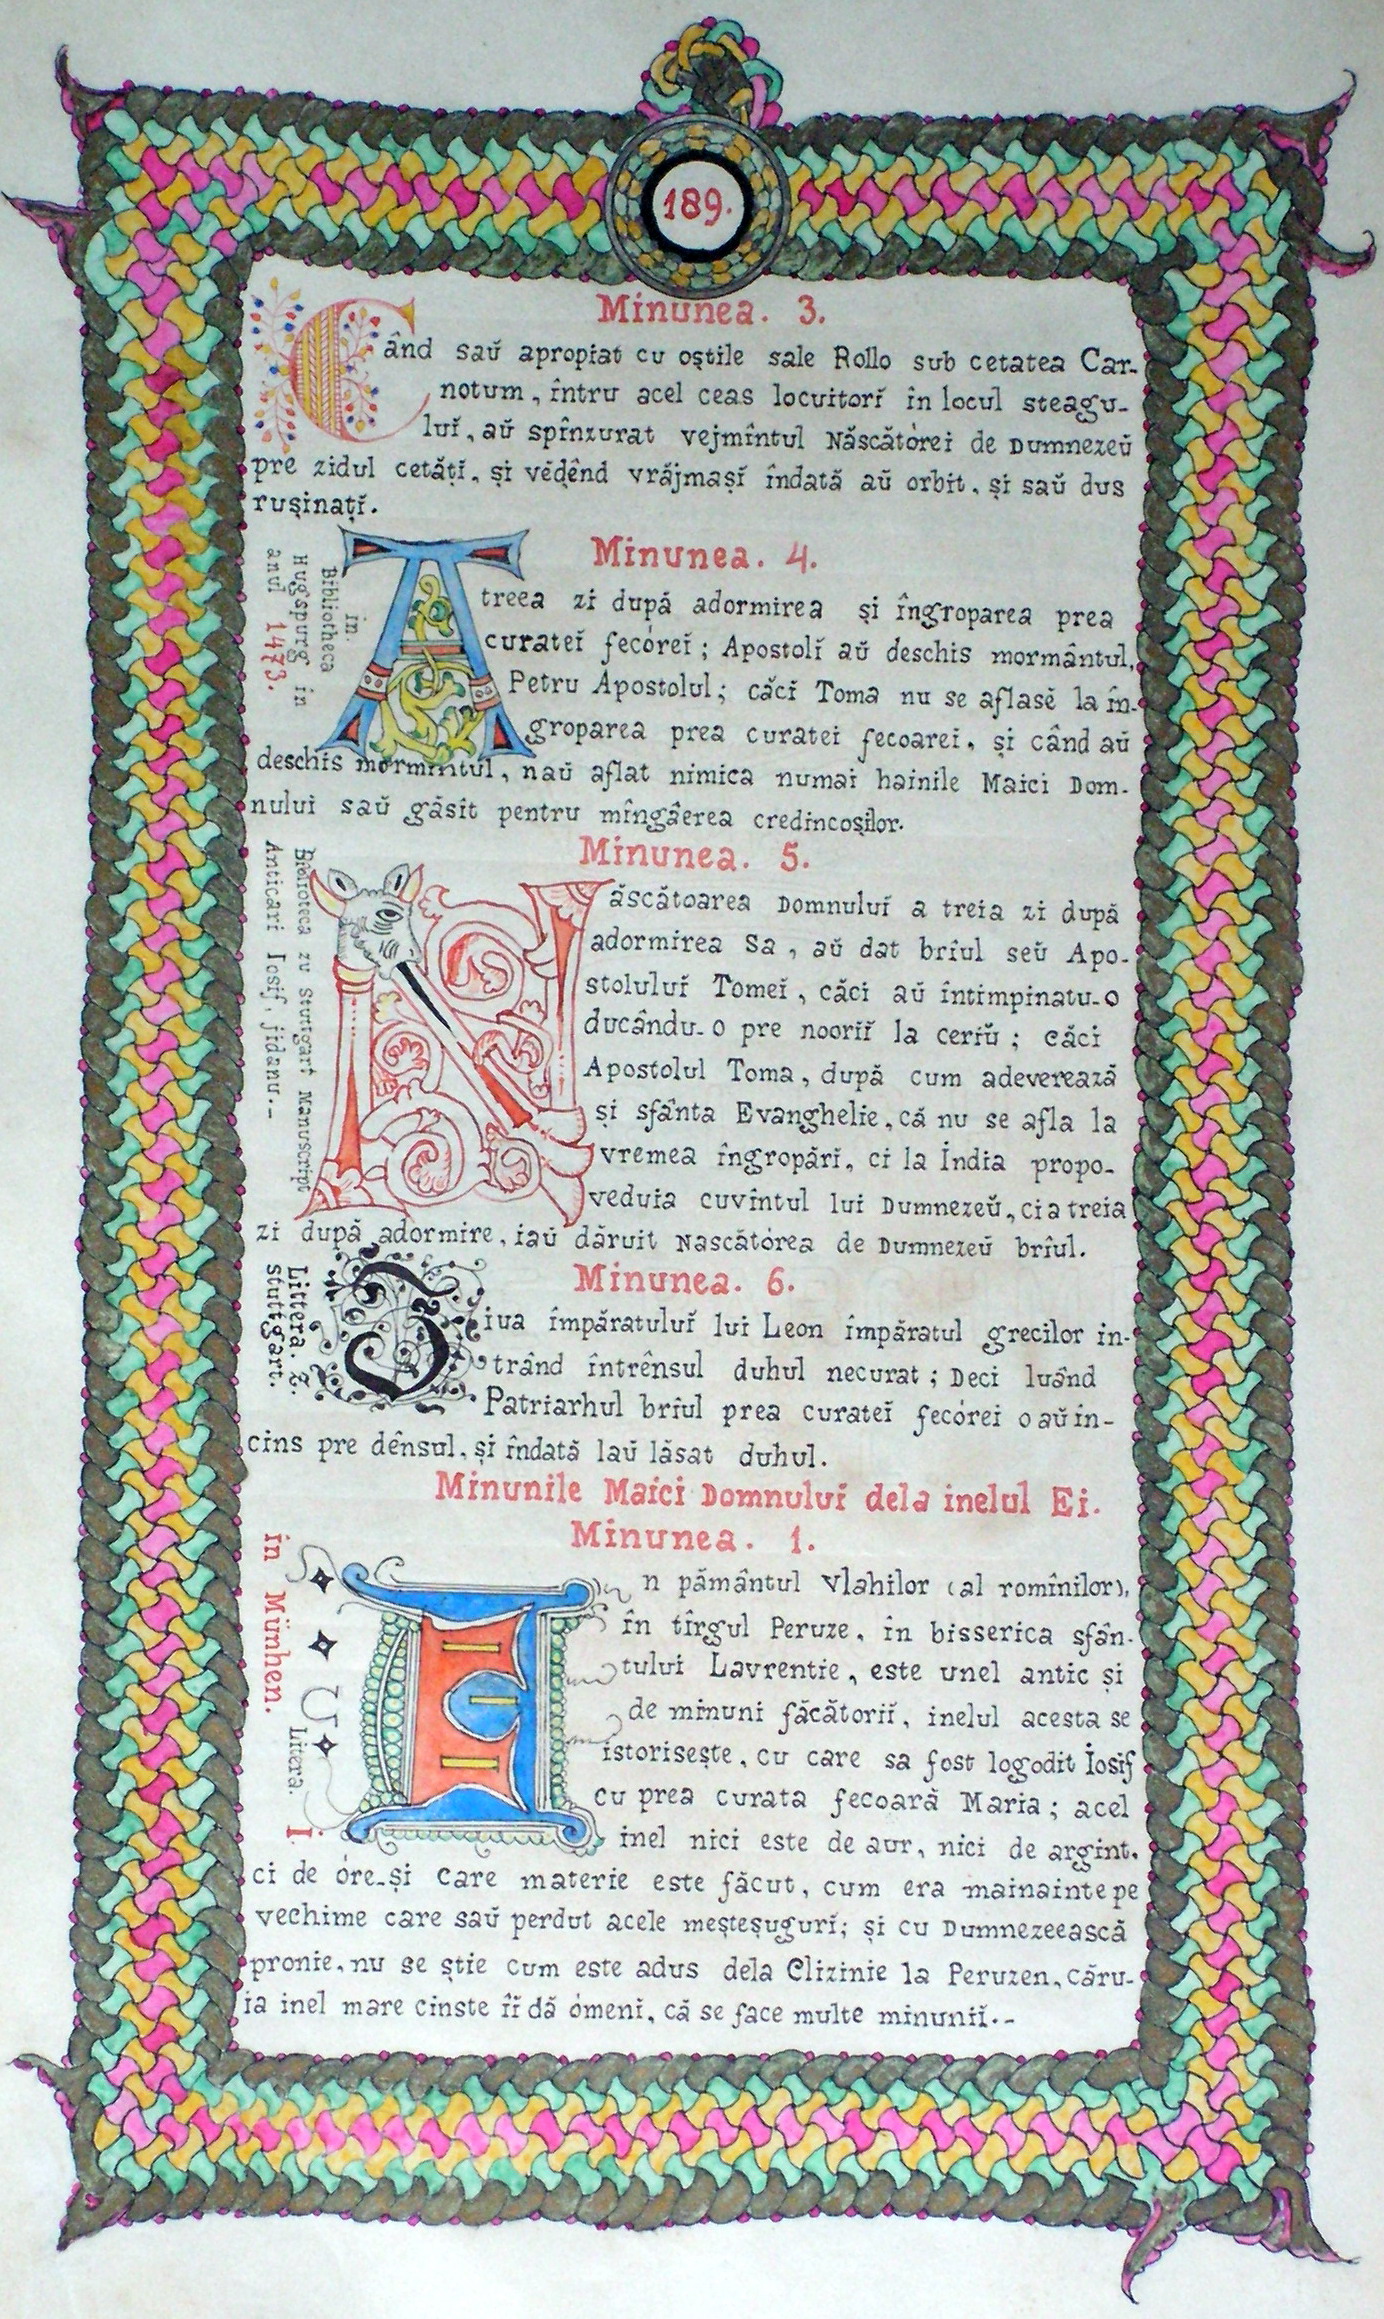 189.
Minunea. 3.
Când saŭ apropiat cu oștile sale Rollo sub cetatea Car-
notum, întru acel ceas locuitorĭ în locul steagu-
luĭ, aŭ spînzurat vejmîntul Născătórei de Dumnezeŭ
pre zidul cetățĭ, și vĕḑênd vrăjmașĭ îndată aŭ orbit, și saŭ dus
rușinațĭ.
in.
Bibliotheca
Hugspurg in
anul 1473.
Minunea. 4.
A treea zi după adormirea și îngroparea prea
curateĭ fecóreĭ; Apostolĭ aŭ deschis mormântul,
Petru Apostolul; căcĭ Toma nu se aflasĕ la în-
groparea prea curatei fecoarei, și când aŭ
deschis mormintul, naŭ aflat nimica numai hainile Maici Dom-
nului saŭ găsit pentru mîngâerea credincoșilor.
Minunea. 5.
zu Sturtgart Manuscript
Anticari Iosif, jidanu.-
Născătoarea Domnuluĭ a treia zi după
adormirea Sa, aŭ dat brîul seŭ Apo-
stoluluĭ Tomeĭ, căci aŭ întimpinatu-o
ducându-o pre nooriĭ la ceriŭ; căci
Apostolul Toma, după cum adeverează
și sfânta Evanghelie, că nu se afla la
vremea îngropări, ci la India propo-
veduia cuvîntul lui Dumnezeŭ, ci a treia
zi după adormire, iaŭ dăruit Nascătórea de Dumnezeŭ brîul.
Littera. Z.
stuttgart.
Minunea. 6.
Ziua împăratuluĭ lui Leon împăratul grecilor in-
trând întrênsul duhul necurat; Deci luând
Patriarhul brîul prea curateĭ fecórei o aŭ în-
cins pre dênsul, și îndată laŭ lăsat duhul.
Minunile Maici Domnuluĭ dela inelul Ei.
Minunea. 1.
in Münhen.
Litera.
I.
În pământul Vlahilor (al romînilor),
în tîrgul Peruze, în bisserica sfân-
tului Lavrentie, este unel antic și
de minuni făcătoriĭ, inelul acesta se
istorisește, cu care sa fost logodit Iosif
cu prea curata fecoară Maria; acel
inel nici este de aur, nici de argint,
ci de óre-și care materie este făcut, cum era mainainte pe
vechime care saŭ perdut acele meșteșugurĭ; și cu Dumnezeească
pronie, nu se știe cum este adus dela Clizinie la Peruzen, căru-
ia inel mare cinste îĭ dă ómeni, că se face multe minuniĭ.-